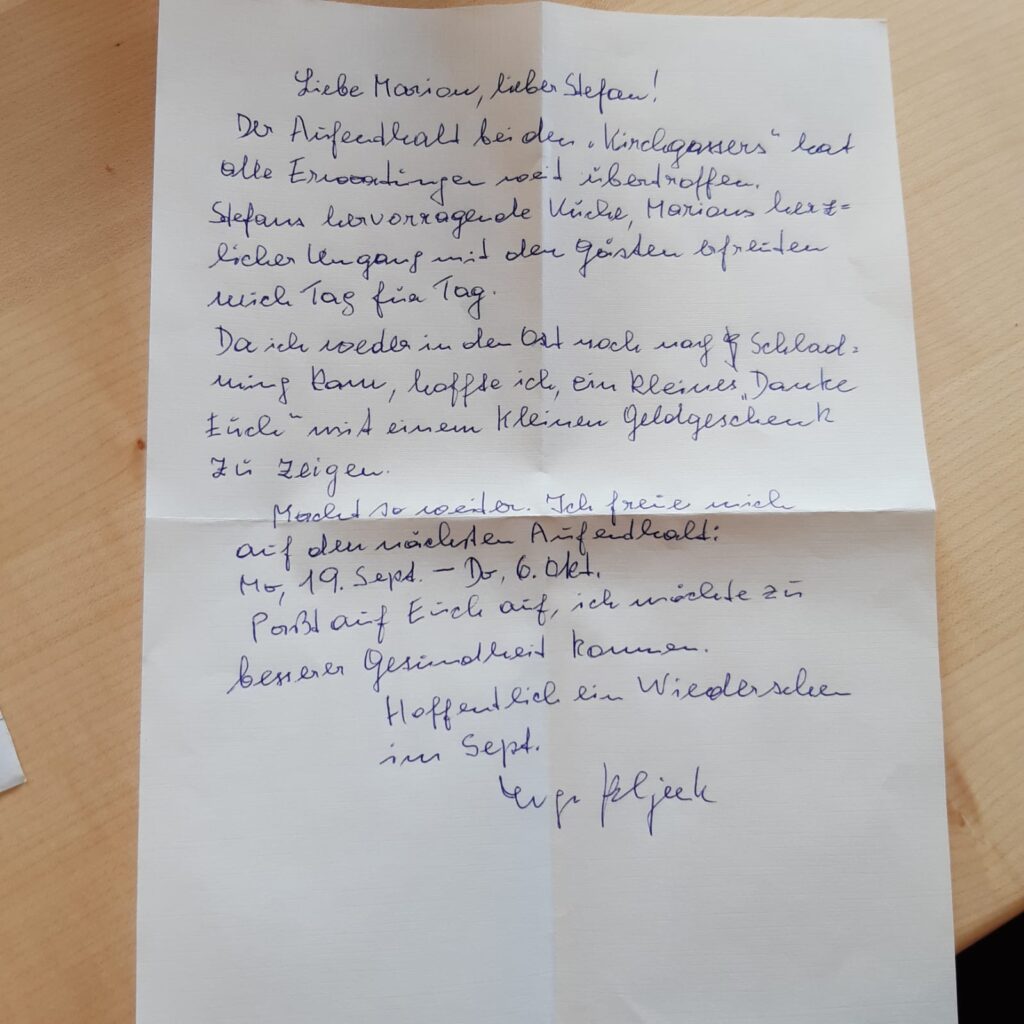 Liebe Marion, lieber Stefan!
Der Aufendhalt bei den „Kirchgassers" hat
alle Erwartungen weit übertroffen.
Stefans hervorragende Küche, Marions herz=
licher Umgang mit den Gästen erfreuten
mich Tag für Tag.
Da ich weder in den Ort noch nach Schlad=
ming kam, hoffte ich, ein kleines „Danke
Euch" mit einem kleinen Geldgeschenk
zu zeigen.
Macht so weiter. Ich freue mich
auf den nächsten Aufendhalt:
Mo, 19. Sept. – Do, 6. Okt.
Paßt auf Euch auf, ich möchte zu
besserer Gesundheit kommen.
Hoffentlich ein Wiedersehen
im Sept.